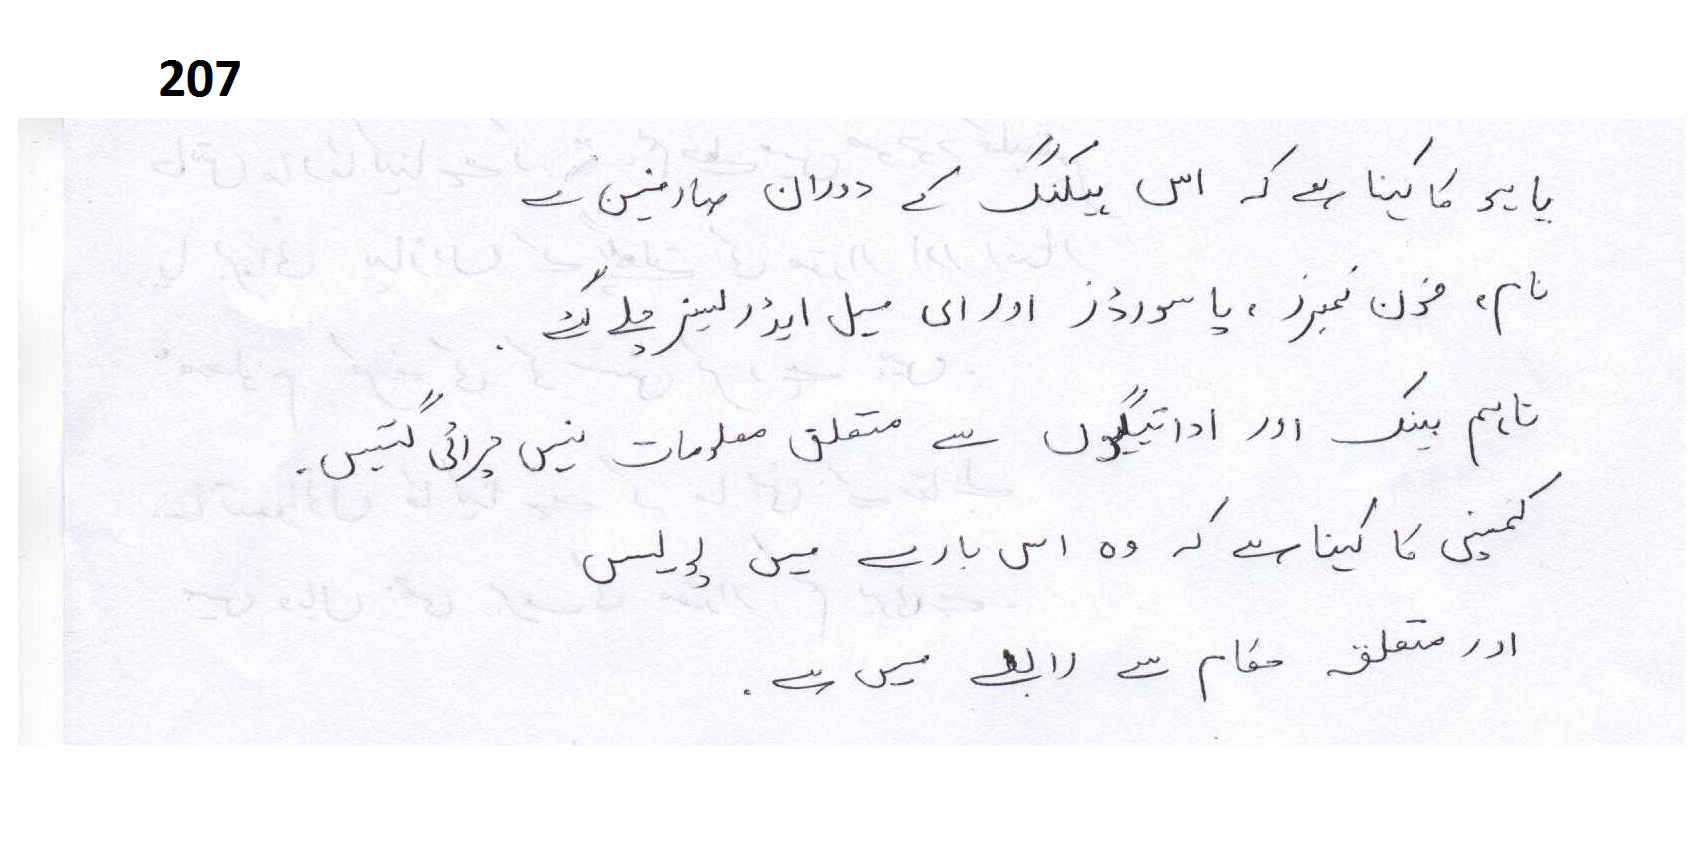 207
یاہو کا کہنا ہے کہ اس ہیکنگ کے دوران صارفین سے
نام، فون نمبرز، پاسورڈز اور ای میل ایڈریسز چلے گئے.
تاہم بینک اور ادائیگیوں سے متعلق معلومات نہیں چرائی گئیں.
کمپنی کا کہنا ہے کہ وہ اس بارے میں پولیس
اور متعلقہ حکام سے رابطے میں ہے.